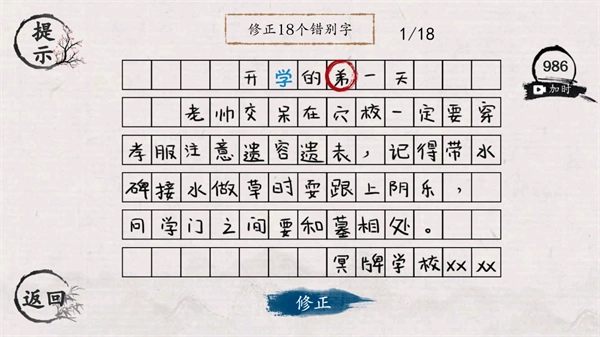 提示
修正18个错别字
1/18
986
加时
开学的弟一天
老帅交呆在穴校一定要穿
孝服注意遗容遗表，记得带水
碑接水做草时耍跟上阴乐，
问学门之间要和墓相处。
冥牌学校xx xx
返回
修正